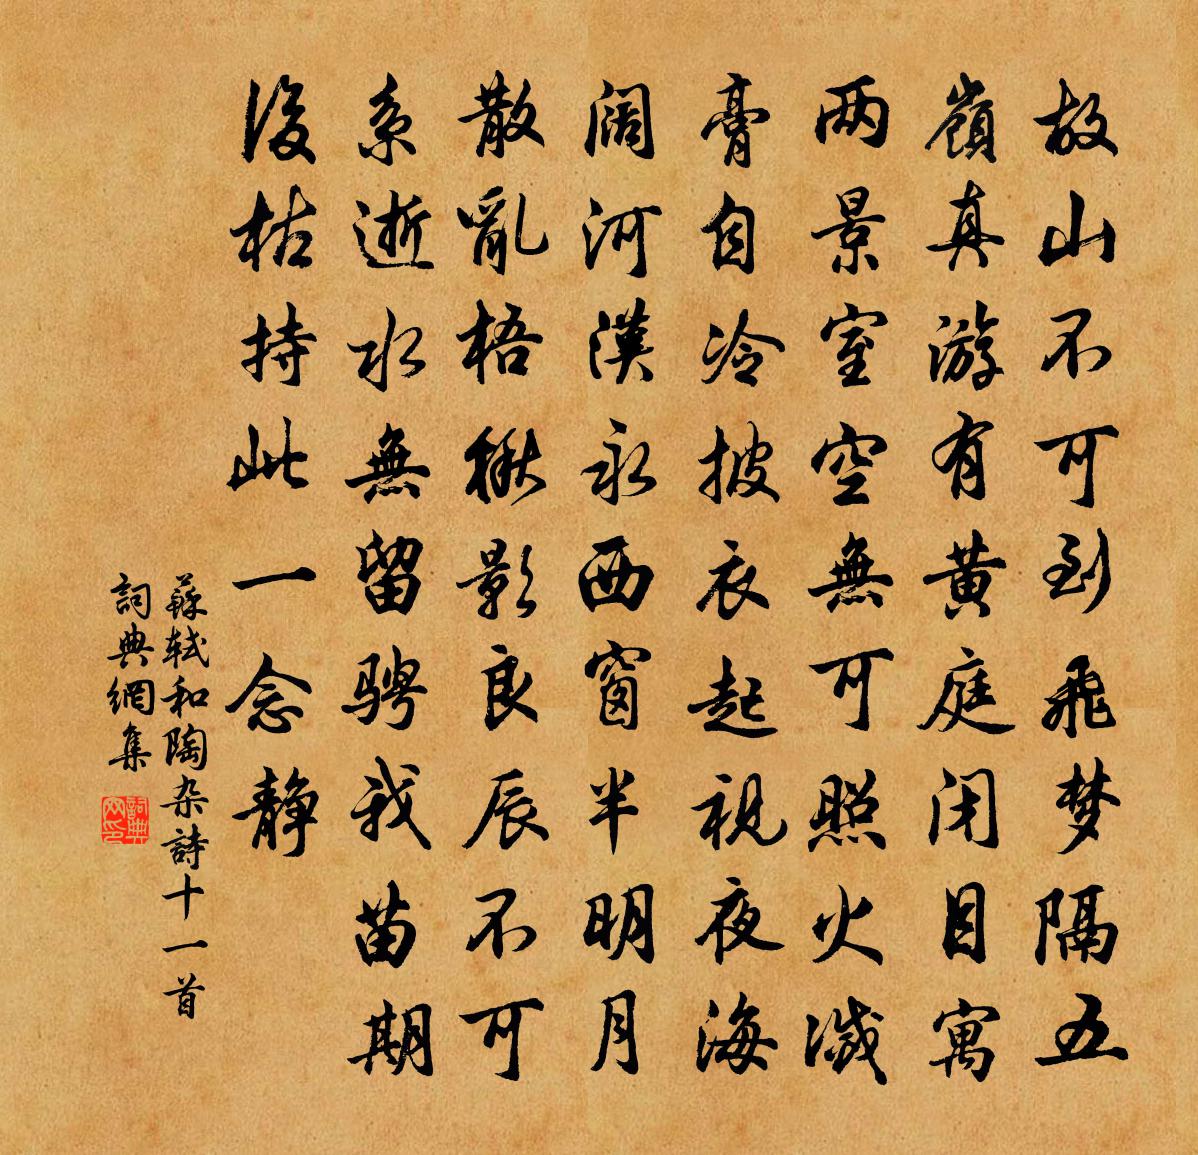 故山不可到飛梦隔五
嶺真游有黄庭闭目寓
两景室空無可照火滅
膏自冷披衣起視夜海
阔河漢永西窗半明月
散亂梧楸影良辰不可
系逝水無留騁我苗期
後枯持此一念静
蘇軾和陶杂詩十一首
詞典網集
詞典
网印